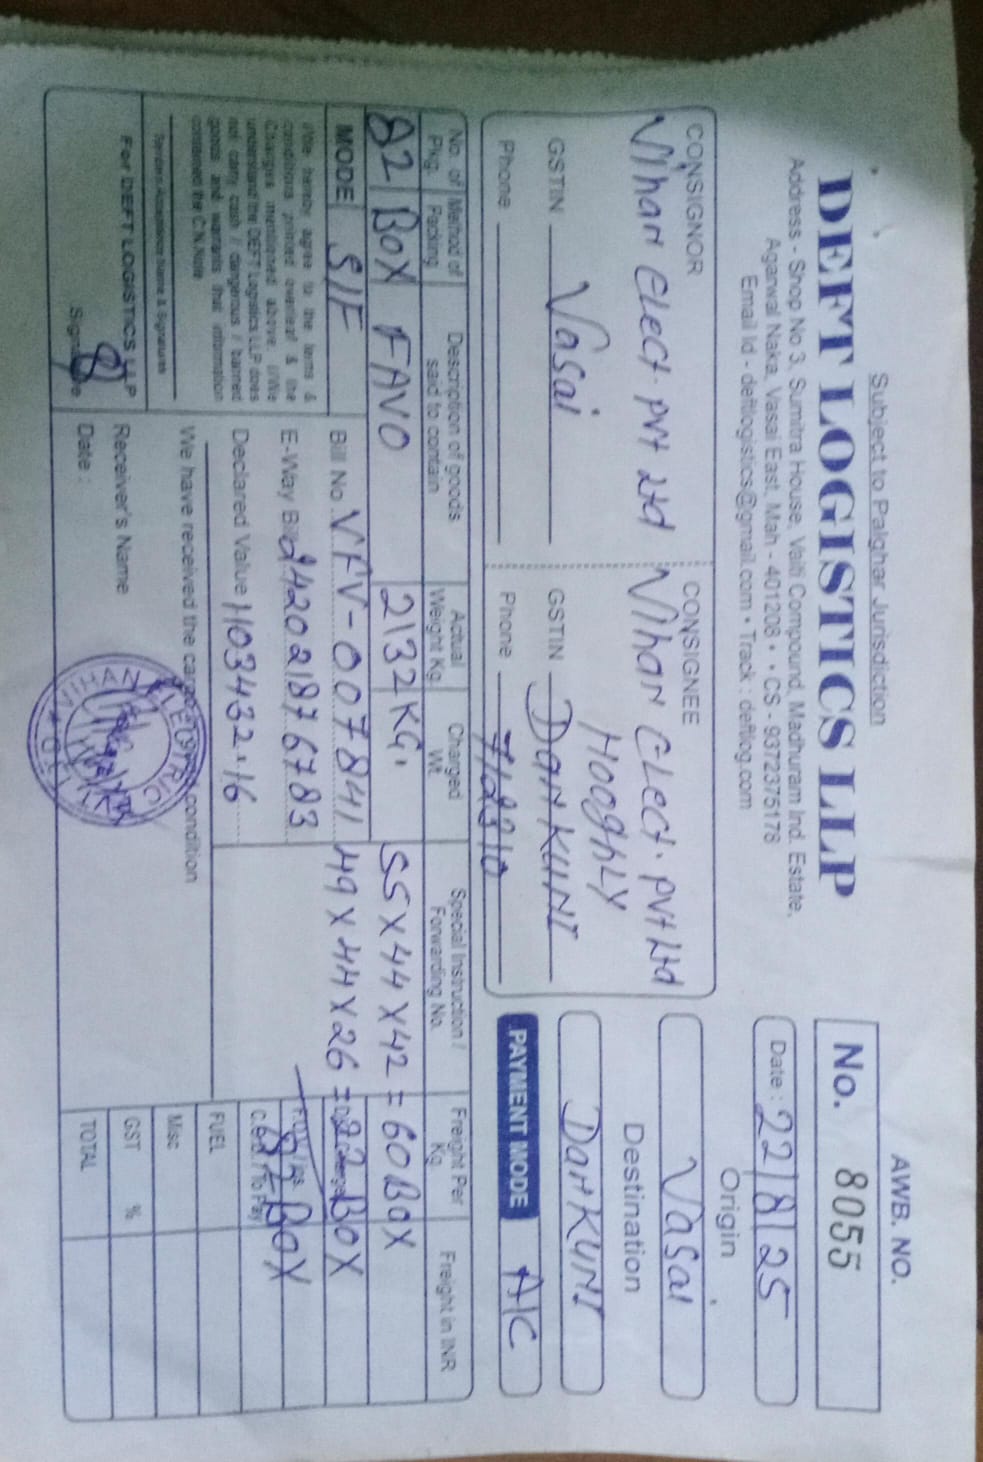 Subject to Palghar Jurisdiction
AWB. NO.
DEFT LOGISTICS LLP
No. 8055
Address - Shop No 3, Sumitra House, Valti Compound, Madhuram Ind. Estate,
Agarwal Naka, Vasai East, Mah - 401208 • • CS - 9372375178
Email Id - deftlogistics@gmail.com • Track : deftlog.com
Date : 22/8/25
CONSIGNOR
Vihan Elect. Pvt Ltd
GSTIN Vasai
Phone
CONSIGNEE
Vihan Elect. Pvt Ltd
Hooghly
GSTIN DanKUNI
Phone 712310
Origin
Vasai
Destination
DanKUNI
PAYMENT MODE A/C
No. of Pkg.
Method of Packing
Description of goods said to contain
Actual Weight Kg.
Charged Wt.
Special Instruction / Forwarding No.
Freight Per Kg.
Freight in INR
82 BOX FAVO 2132 KG.
55 X 44 X 42 = 60 BOX
49 X 44 X 26 = 22 BOX
82 BOX
MODE S/F
Bill No. VFV-007841
E-Way Bill 242021876783
Declared Value 1103432.16
I/We hereby agree to the terms &
conditions printed overleaf & the
Charges mentioned above. I/We
understand the DEFT Logistics LLP does
not carry cash / dangerous / banned
goods and warrants that information
contained the C.N.Note
We have received the cargo condition
For DEFT LOGISTICS LLP
Signature
Receiver's Name
Date :
VIHAN ELECTRIC
F.O.V / Ins.
C.O.D. / To Pay
FUEL
Misc
GST %
TOTAL